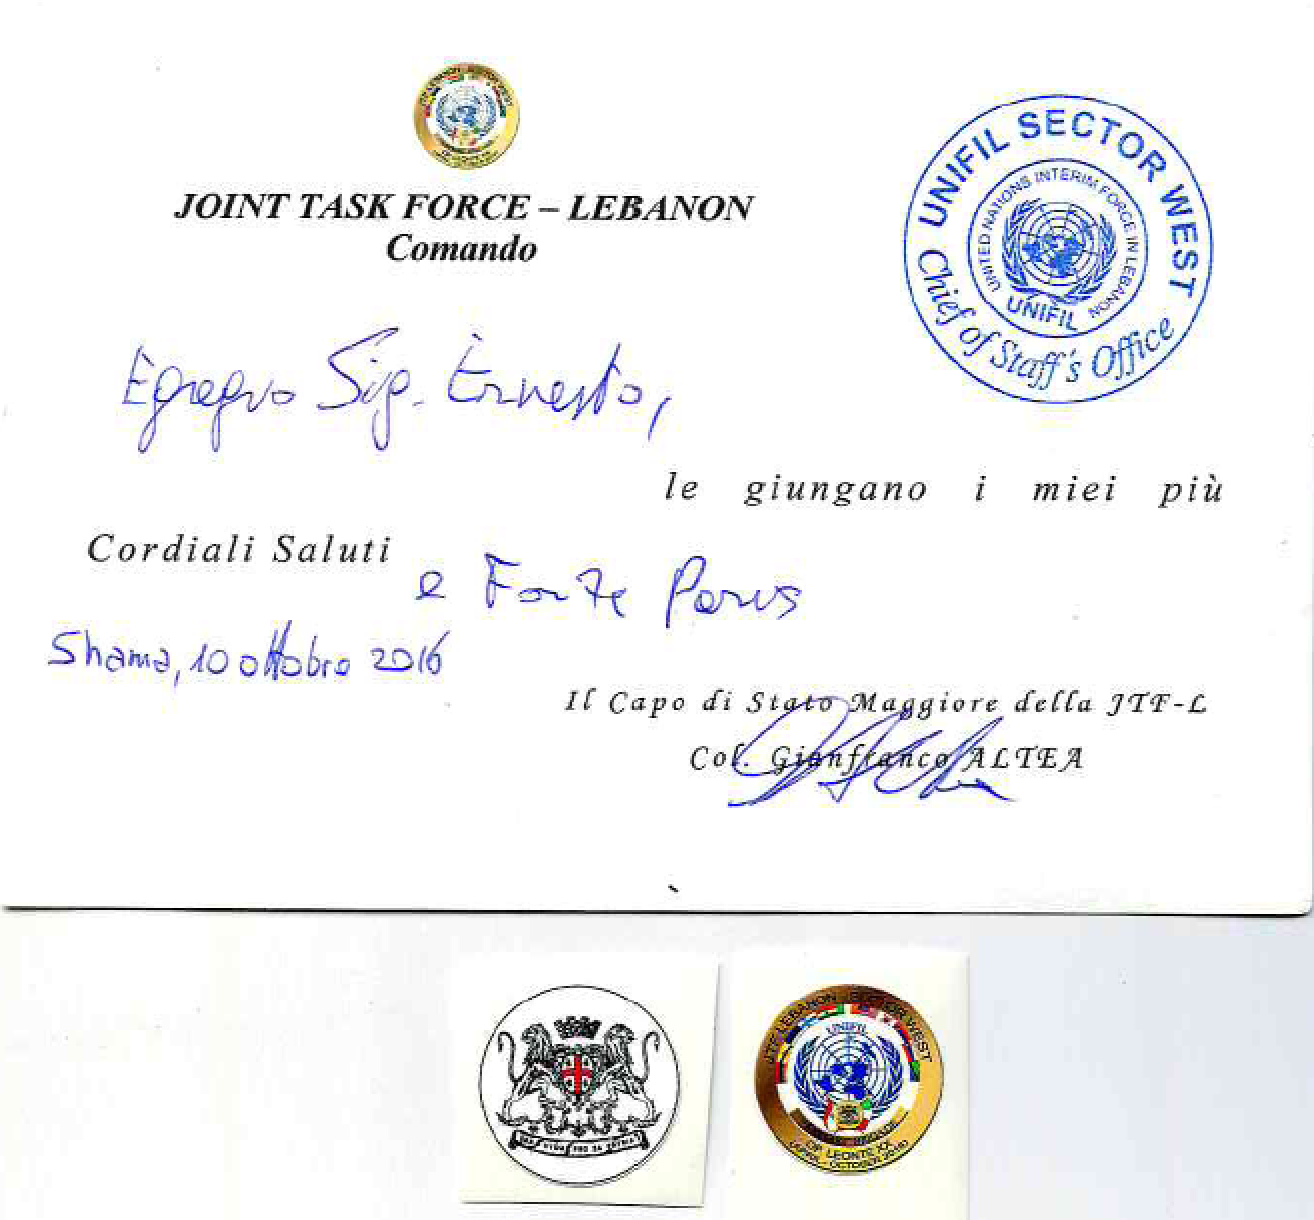 JOINT TASK FORCE – LEBANON
Comando
UNIFIL SECTOR WEST
UNITED NATIONS INTERIM FORCE IN LEBANON
UNIFIL
Chief of Staff's Office
Egregio Sig. Ernesto,
le giungano i miei più
Cordiali Saluti
e Forte Paris
Shama, 10 ottobre 2016
Il Capo di Stato Maggiore della JTF-L
Col. Gianfranco ALTEA
JTF LEBANON SECTOR WEST
UNIFIL
OP. LEONTE XX
OCTOBER